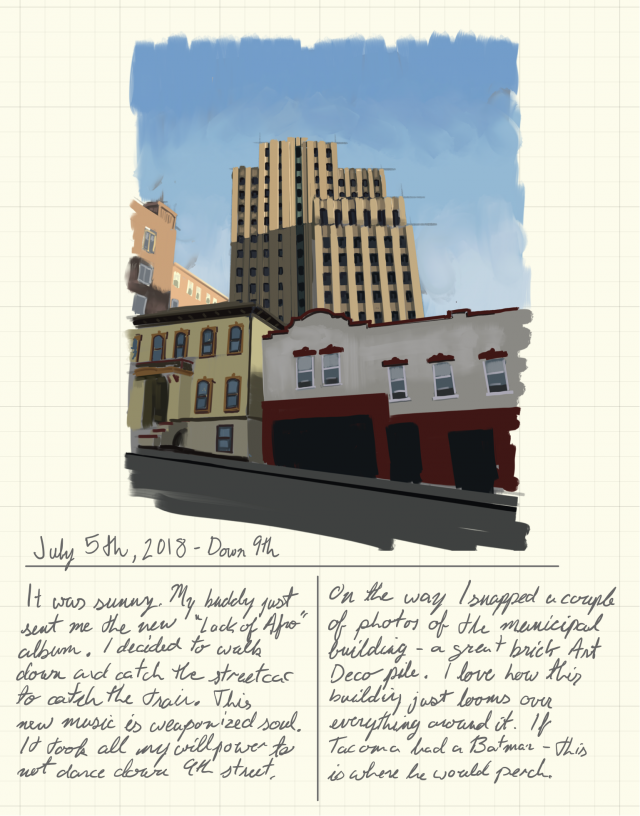 July 5th, 2018 - Down 9th
It was sunny. My buddy just
sent me the new "Lack of Afro"
album. I decided to walk
down and catch the streetcar
to catch the train. This
new music is weaponized soul.
It took all my willpower to
not dance down 9th street.
On the way I snapped a couple
of photos of the municipal
building - a great brick Art
Deco pile. I love how this
building just looms over
everything around it. If
Tacoma had a Batman - this
is where he would perch.